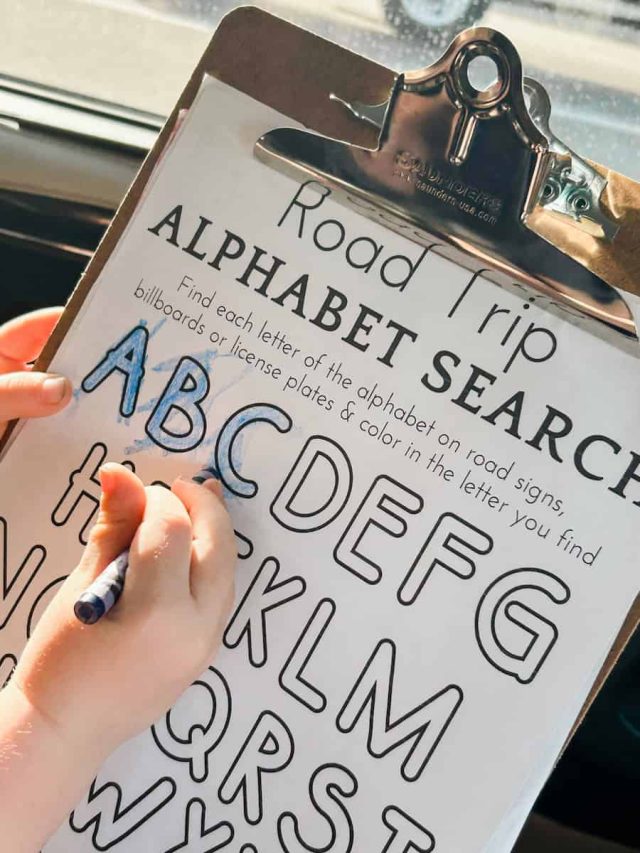 SAUNDERS
www.saunders-usa.com
Road Trip
ALPHABET SEARCH
Find each letter of the alphabet on road signs,
billboards or license plates & color in the letter you find
ABCDEFG
H KLM
N QRST
W Y